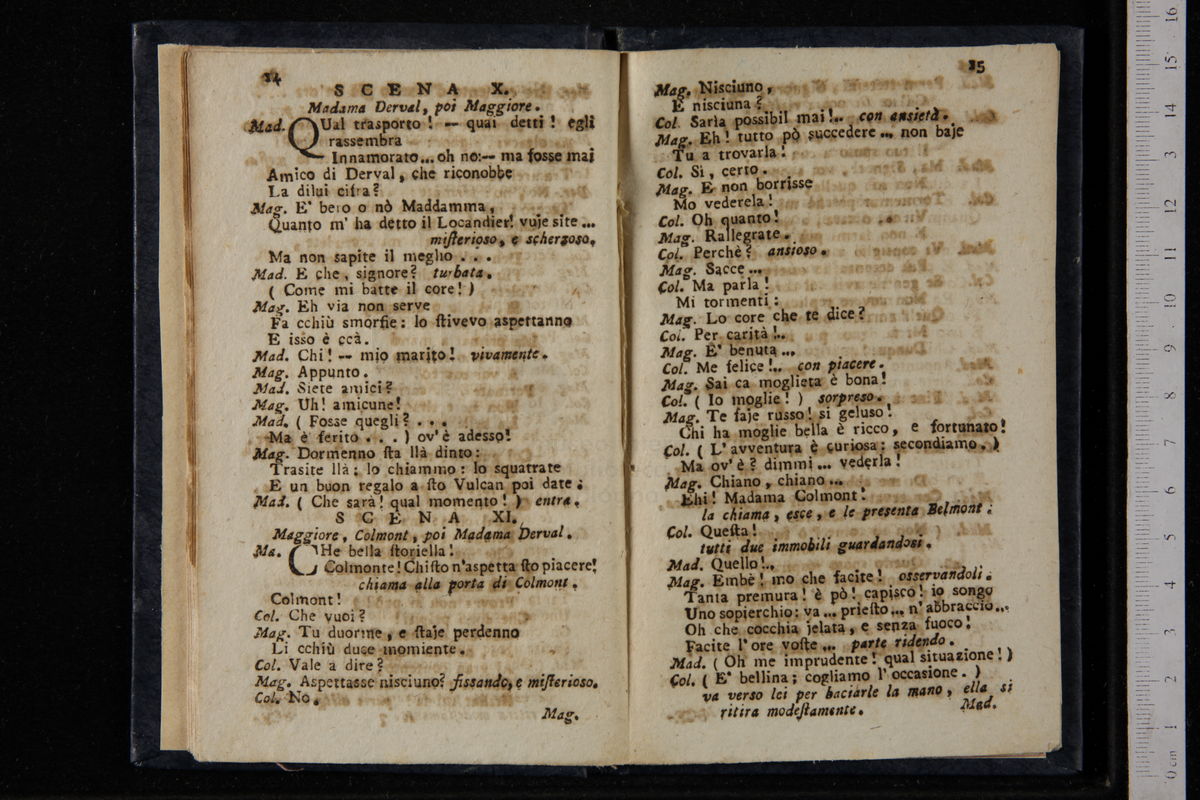 24
SCENA X.
Madama Derval, poi Maggiore.
Mad. QUal trasporto! — quai detti! egli
rassembra
Innamorato... oh no:— ma fosse mai
Amico di Derval, che riconobbe
La dilui cifra?
Mag. E' bero o nò Maddamma,
Quanto m' ha detto il Locandier! vuje site ...
misterioso, e scherzoso.
Ma non sapite il meglio . . .
Mad. E che, signore? turbata.
( Come mi batte il core! )
Mag. Eh via non serve
Fa cchiù smorfie: lo stivevo aspettanno
E isso è ccà.
Mad. Chi! — mio marito! vivamente.
Mag. Appunto.
Mad. Siete amici?
Mag. Uh! amicune!
Mad. ( Fosse quegli? . . .
Ma è ferito . . . ) ov'è adesso!
Mag. Dormenno sta llà dinto:
Trasite llà: lo chiammo: lo squatrate
E un buon regalo a sto Vulcan poi date.
Mad. ( Che sarà! qual momento! ) entra.
SCENA XI.
Maggiore, Colmont, poi Madama Derval.
Ma. CHe bella storiella!
Colmonte! Chisto n'aspetta sto piacere!
chiama alla porta di Colmont.
Colmont!
Col. Che vuoi?
Mag. Tu duorme, e staje perdenno
Li cchiù duce momiente.
Col. Vale a dire?
Mag. Aspettasse nisciuno? fissando, e misterioso.
Col. No.
Mag.
25
Mag. Nisciuno,
E nisciuna?
Col. Sarìa possibil mai!.. con ansietà.
Mag. Eh! tutto pò succedere ... non baje
Tu a trovarla!
Col. Sì, certo.
Mag. E non borrisse
Mo vederela!
Col. Oh quanto!
Mag. Rallegrate.
Col. Perchè? ansioso.
Mag. Sacce ...
Col. Ma parla!
Mi tormenti:
Mag. Lo core che te dice?
Col. Per carità!..
Mag. E' benuta ...
Col. Me felice!.. con piacere.
Mag. Sai ca moglieta è bona!
Col. ( Io moglie! ) sorpreso.
Mag. Te faje russo! si geluso!
Chi ha moglie bella è ricco, e fortunato!
Col. ( L' avventura è curiosa: secondiamo. )
Ma ov'è? dimmi ... vederla!
Mag. Chiano, chiano ...
Ehi! Madama Colmont!
la chiama, esce, e le presenta Belmont.
Col. Questa!
tutti due immobili guardandosi.
Mad. Quello!..
Mag. Embè! mo che facite! osservandoli.
Tanta premura! è pò! capisco! io songo
Uno sopierchio: va ... priesto ... n' abbraccio...
Oh che cocchia jelata, e senza fuoco!
Facite l' ore voste ... parte ridendo.
Mad. ( Oh me imprudente! qual situazione! )
Col. ( E' bellina; cogliamo l' occasione. )
va verso lei per baciarle la mano, ella si
ritira modestamente.
Mad.